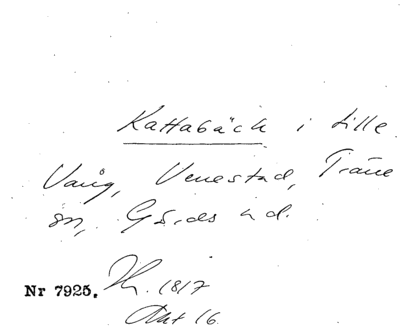 Kattabäck i Lille
Vång, Venestad, Träne
sn, Gärds hd.
Nr 7925. Th. 1817
Akt 16